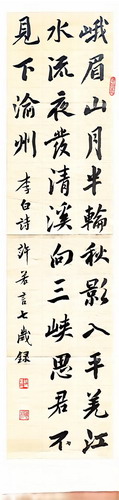 峨眉山月半輪秋影入平羌江
水流夜發清溪向三峽思君不
見下渝州 李白詩 許若言七歲録